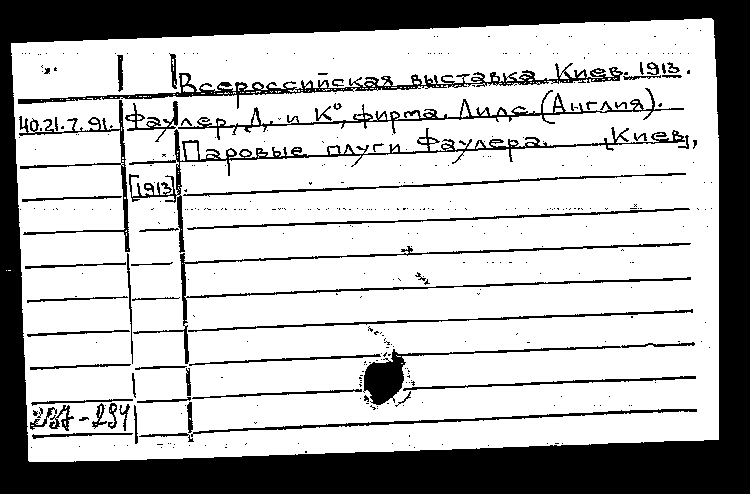 Всероссийская выставка. Киев. 1913.
40.21.7.91. Фаулер, Д. и К°, фирма. Лидс (Англия).
Паровые плуги Фаулера. [Киев],
[1913].